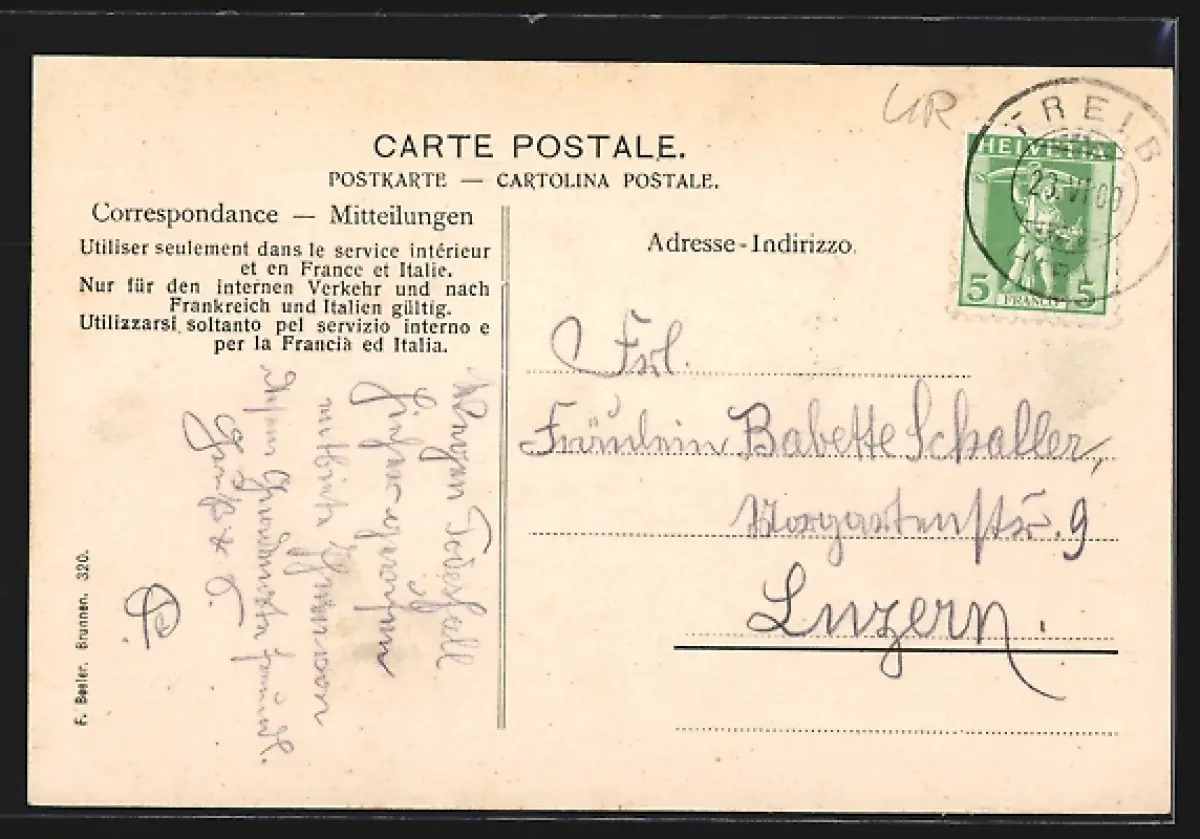 UR
TREIB
23.VI.00
HELVETIA
5 FRANCO 5
CARTE POSTALE.
POSTKARTE — CARTOLINA POSTALE.
Correspondance — Mitteilungen
Utiliser seulement dans le service intérieur
et en France et Italie.
Nur für den internen Verkehr und nach
Frankreich und Italien gültig.
Utilizzarsi soltanto pel servizio interno e
per la Francia ed Italia.
Wegen Todesfall
von
Grüße
F. Beeler. Brunnen. 320.
Adresse-Indirizzo.
Frl.
Fräulein Babette Schaller,
Morgartenstr. 9
Luzern.